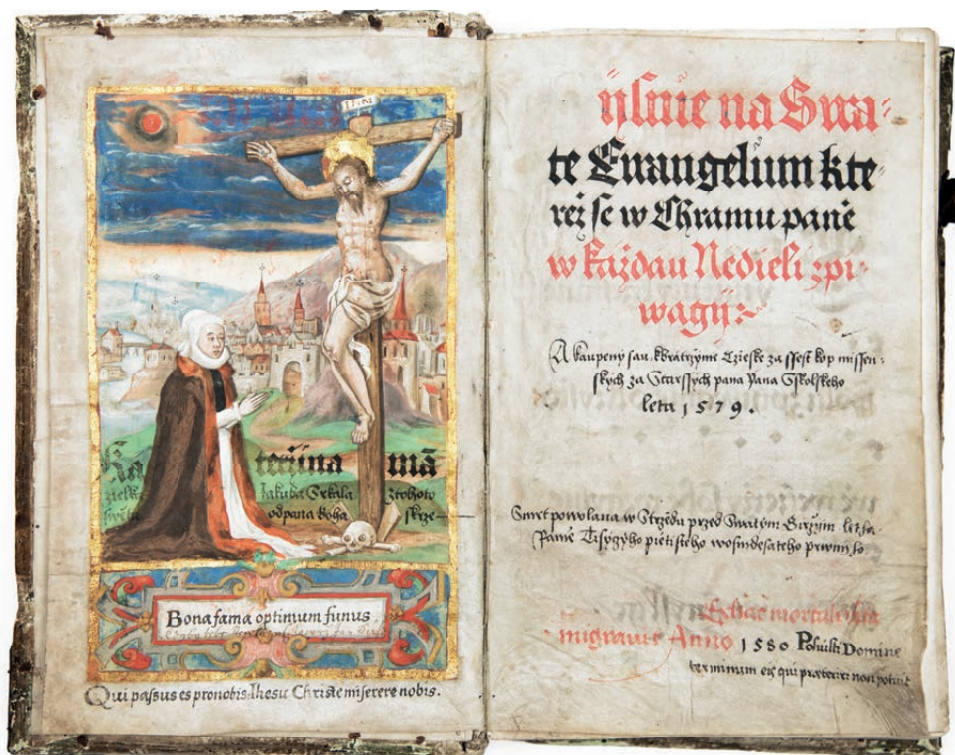 Ka teržina mā
zielka Jakuba Srkala Ztohoto
swěta od pana boha skrze
Bona fama optimum funus
Qui passus es pro nobis Ihesu Christe miserere nobis.
ijsnie na Swa⸗
te Ewangelium kte⸗
rež se w Chramu panē
w každau Nedieli zpi⸗
wagij:
A kaupeny sau k bratrzyme Czieske za ssest kop missen⸗
skych za Starssych pana Pana
leta 1579.
Smrt powolana w Strzedu przed Swatym letha
Panie Tisyczyho pietisteho wosmdesateho prwniho
Ex hac mortali vita
migravit Anno 1580 Posuisti Domine
terminum eis qui præterire non potuit